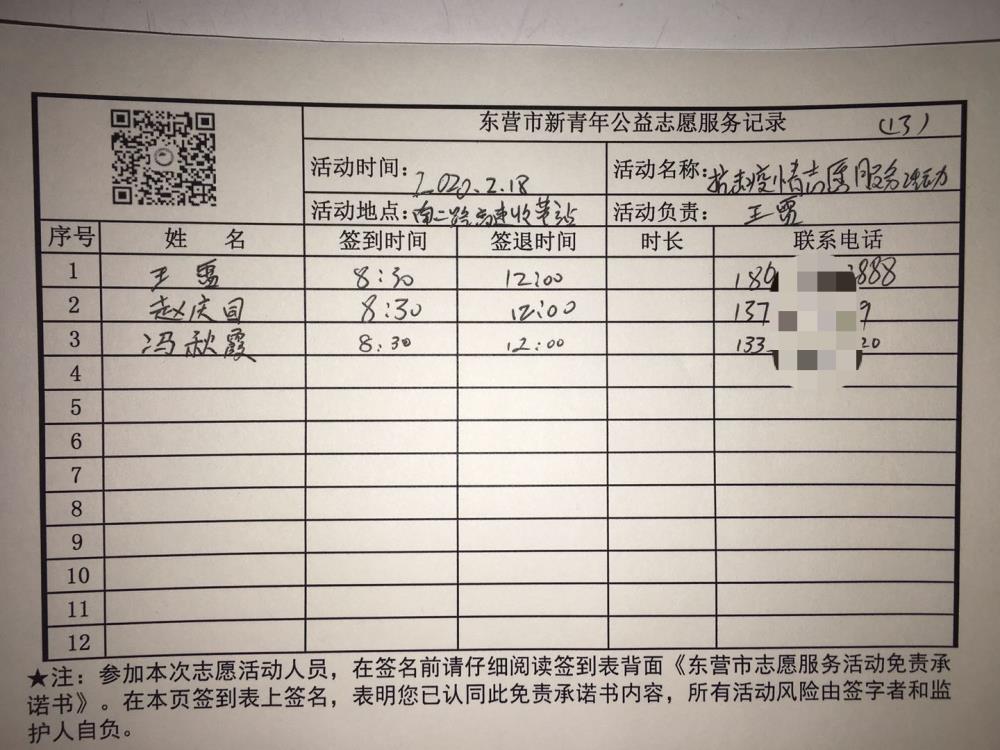 东营市新青年公益志愿服务记录 (13)
活动时间: 2020.2.18 活动名称: 抗击疫情志愿服务活动
活动地点: 南二路高速收费站 活动负责: 王雷
序号 姓 名 签到时间 签退时间 时长 联系电话
1 王雷 8:30 12:00
2 赵庆国 8:30 12:00 137
3 冯秋霞 8:30 12:00 133 20
4
5
6
7
8
9
10
11
12
★注：参加本次志愿活动人员，在签名前请仔细阅读签到表背面《东营市志愿服务活动免责承
诺书》。在本页签到表上签名，表明您已认同此免责承诺书内容，所有活动风险由签字者和监
护人自负。